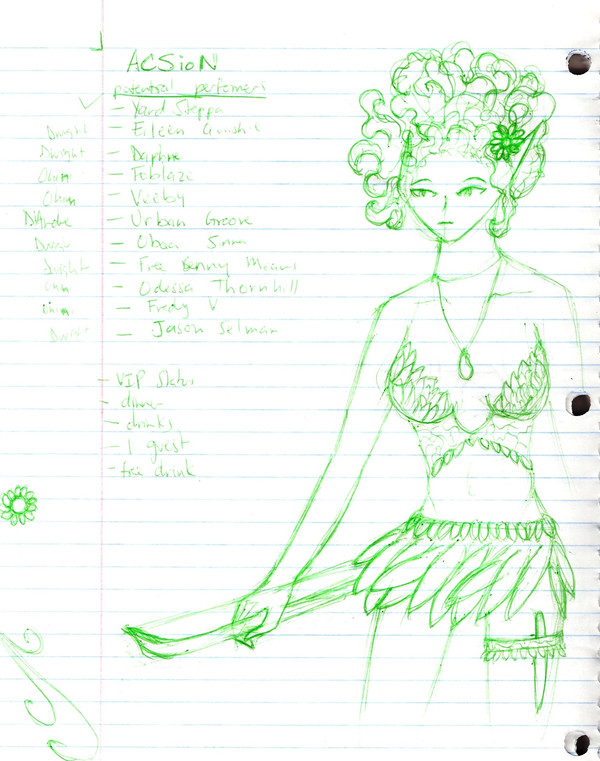 ACSioN
potential performers
- Yard Steppa
Dwight - Eileen
Dwight - Daphne
Chin - Foblaze
Chin - Veeby
- Urban Groove
- Obaa Sima
Dwight - Free Benny Means
Chin - Odessa Thornhill
Chin - Fredy V
Dwight - Jason Selman
- VIP Status
- dinner
- drinks
- 1 guest
- free drink